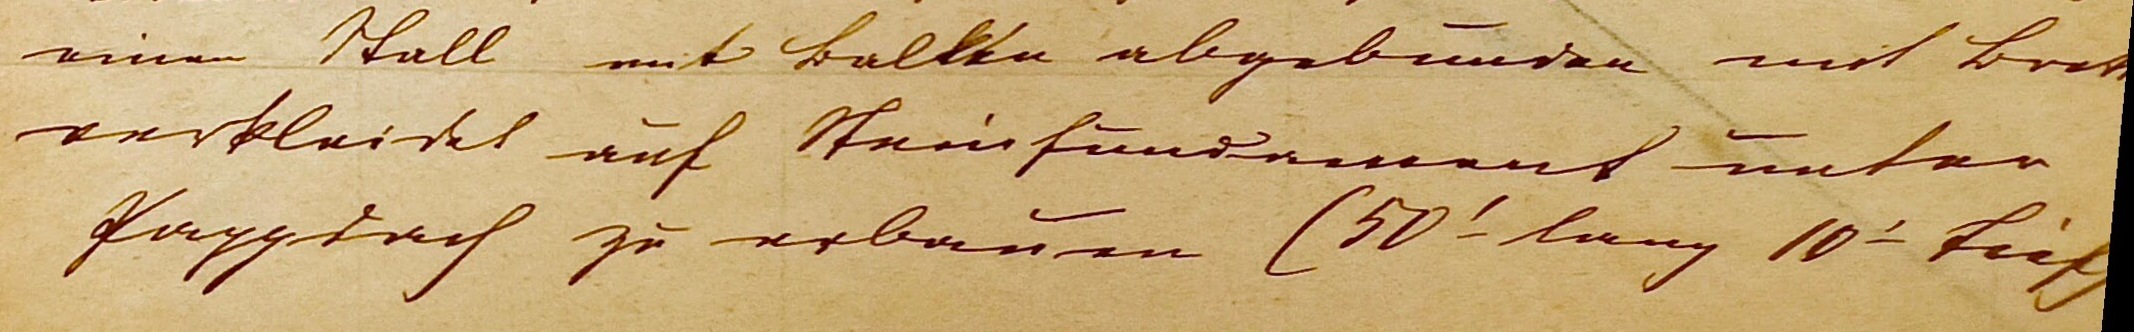 einen Stall mit Balken abgebunden mit Brett
verkleidet auf Steinfundament unter
Pappdach zu erbauen (50' lang 10' tief)